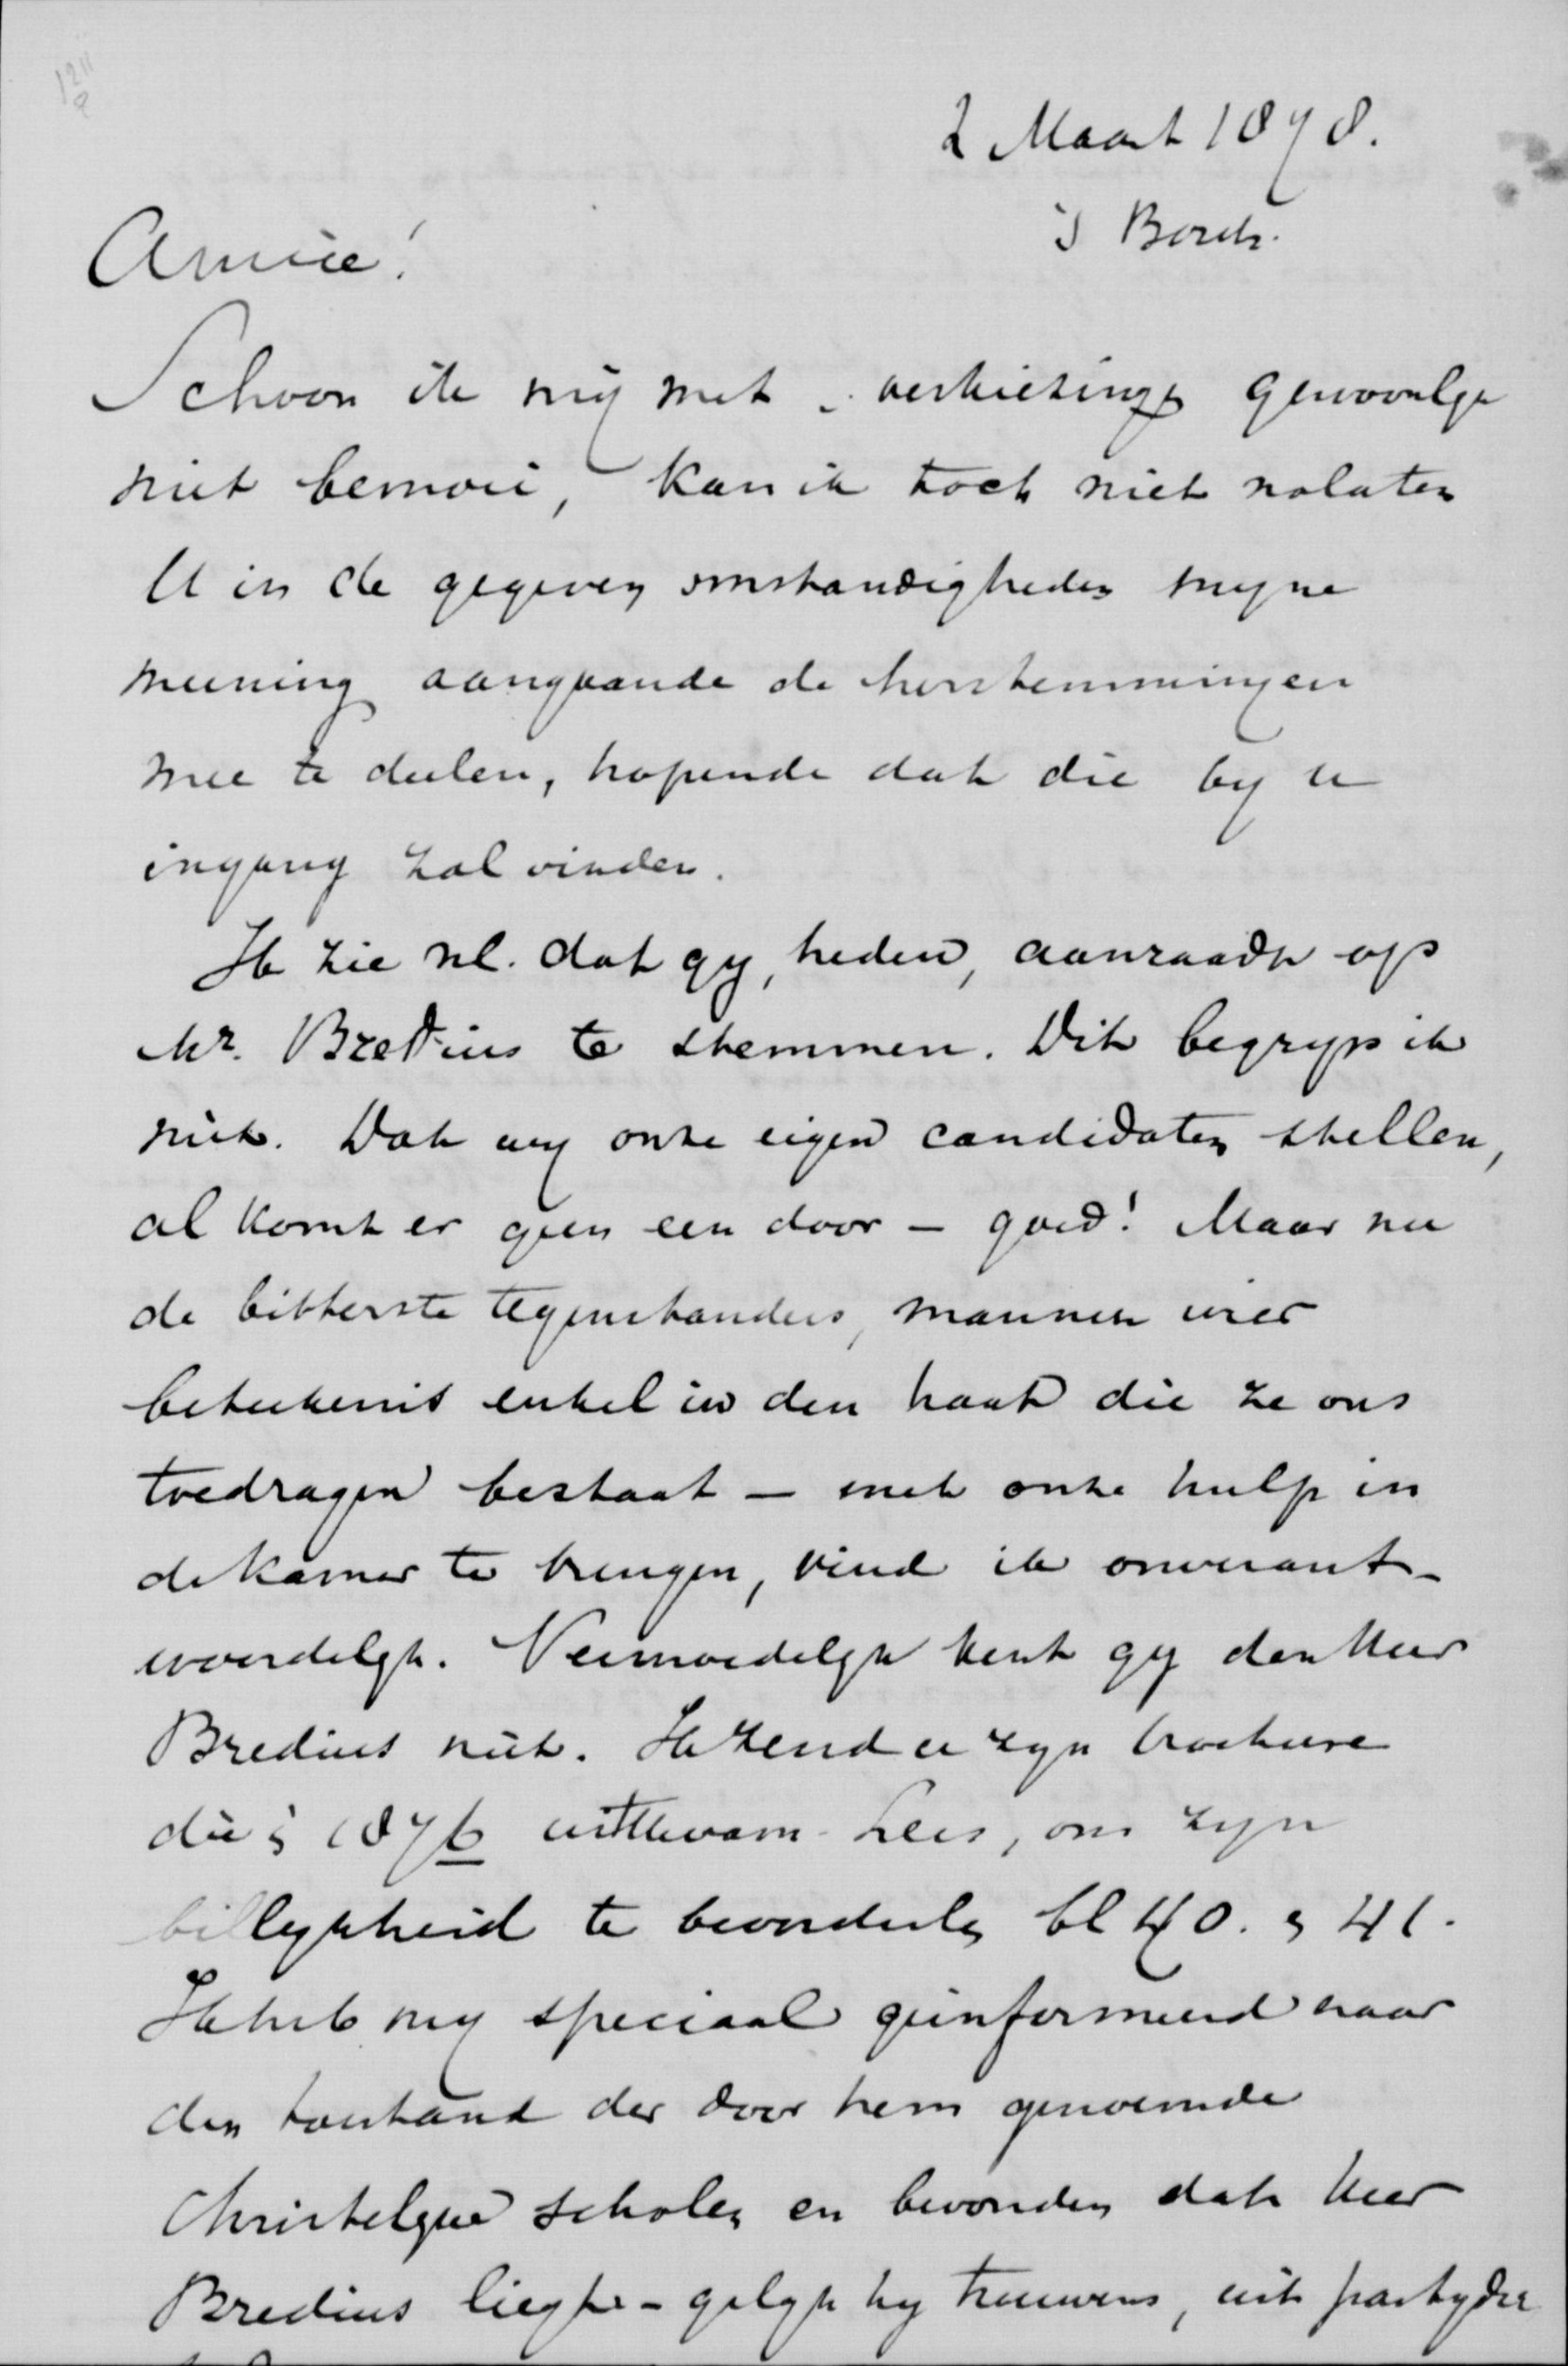 2 Maart 1878.
's Bosch.
Amice!
Schoon ik mij met verkiezingen gewoonlyk
niet bemoei, kan ik toch niet nalaten
U in de gegeven omstandigheden myne
meening aangaande de herstemmingen
mee te deelen, hopende dat die by u
ingang zal vinden.
Ik zie nl. dat gy, heden, aanraadt op
Mr. Bredius te stemmen. Dit begryp ik
niet. Dat wy onze eigen candidaten stellen,
al komt er geen een door - goed! Maar nu
de bitterste tegenstanders, mannen wier
beteekenis enkel in den haat die ze ons
toedragen bestaat - met onze hulp in
de kamer te brengen, vind ik onverant-
woordelyk. Vermoedelyk kent gy den Heer
Bredius niet. Ik zend u zyn brochure
die in 1876 uitkwam. Lees, om zyn
billykheid te beoordeelen bl 40. en 41.
Ik heb my speciaal geinformeerd naar
den toestand der door hem genoemde
Christelyke scholen en bevonden dat Heer
Bredius liegt - gelyk hy trouwens, uit partyder